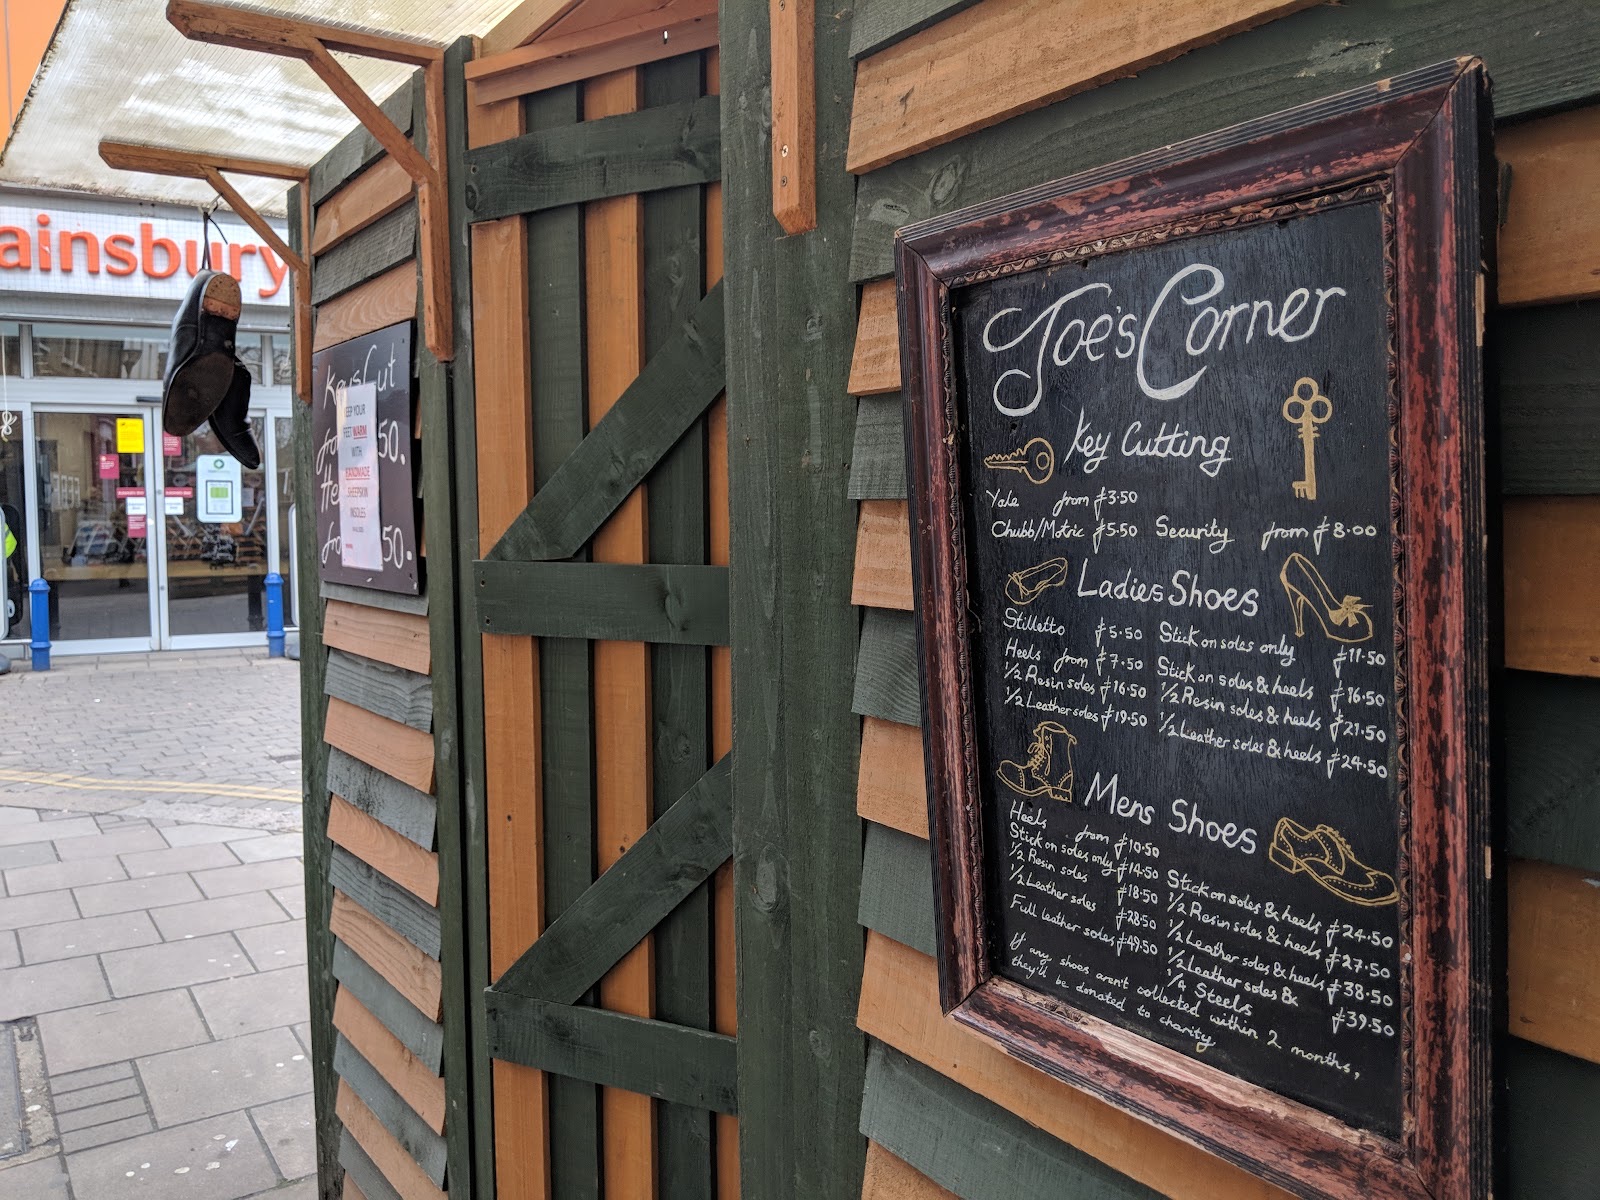 ainsbury
Keys Cut
fro 50.
He
fro 50.
KEEP YOUR
FEET WARM
WITH
HANDMADE
SHEEPSKIN
INSOLES
Joe's Corner
Key Cutting
Yale from £3.50
Chubb/Motric £5.50 Security from £8.00
Ladies Shoes
Stilletto £5.50 Stick on soles only £11.50
Heels from £7.50 Stick on soles & heels £16.50
1/2 Resin soles £16.50 1/2 Resin soles & heels £21.50
1/2 Leather soles £19.50 1/2 Leather soles & heels £24.50
Mens Shoes
Heels from £10.50
Stick on soles only £14.50 Stick on soles & heels £24.50
1/2 Resin soles £18.50 1/2 Resin soles & heels £27.50
1/2 Leather soles £28.50 1/2 Leather soles & heels £38.50
Full leather soles £49.50 1/2 Leather soles &
1/4 Steels £39.50
If any shoes aren't collected within 2 months,
they'll be donated to charity